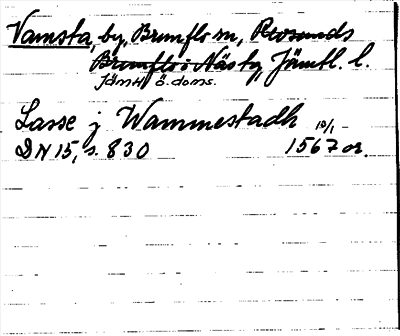 Vamsta, by, Brunflo sn, Brunflo o. Näs tg, Jämtl. l.
Jämtl ö. doms.
Lasse j Wammestadh 10/1
DN 15, s. 830 1567 or.